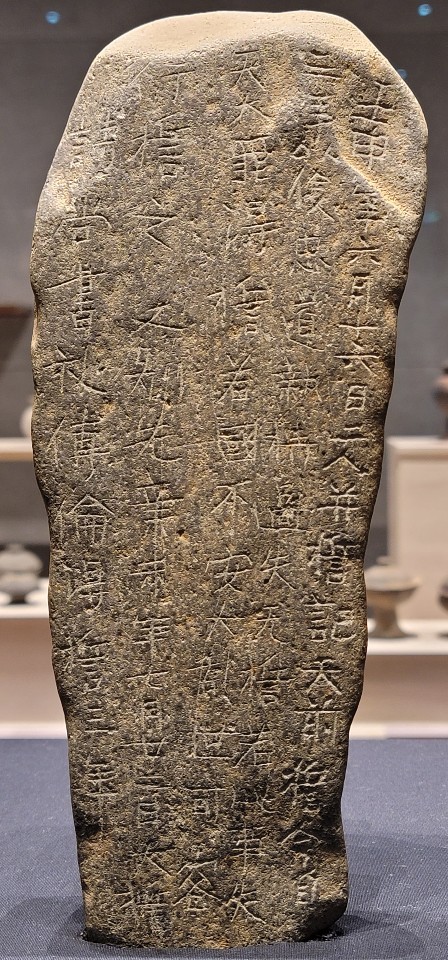 壬申年六月十六日二人并誓記天前誓今自
三年以後忠道執持過失无誓若此事失
天大罪得誓若國不安大乱世可容
行誓之又別先辛未年七月廿二日大誓
詩尚書礼傳倫得誓三年